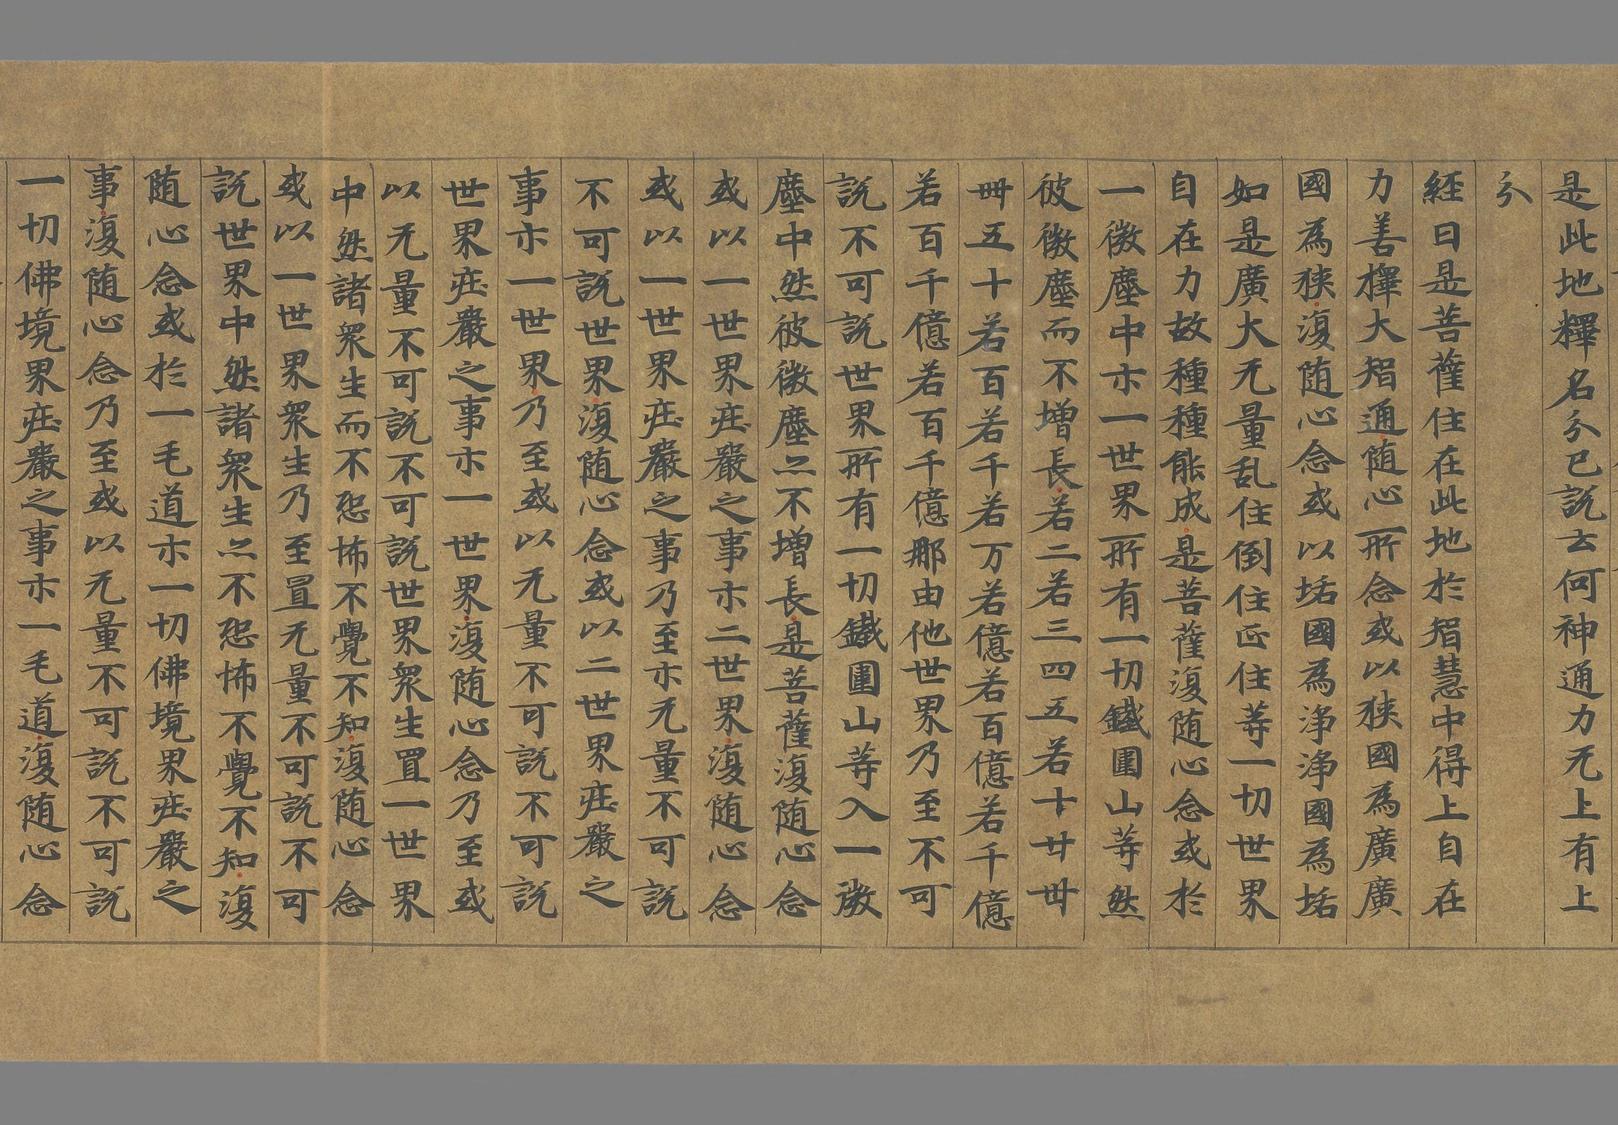 是此地釋名分已說云何神通力无上有上
分
經曰是菩薩住在此地於智慧中得上自在
力善擇大智通随心所念或以狹國為廣廣
國為狹復随心念或以垢國為淨淨國為垢
如是廣大无量乱住倒住正住等一切世界
自在力故種種能成是菩薩復随心念或於
一微塵中示一世界所有一切鐵圍山等然
彼微塵而不增長若二若三四五若十廿卅
卌五十若百若千若万若億若百億若千億
若百千億若百千億那由他世界乃至不可
說不可說世界所有一切鐵圍山等入一微
塵中然彼微塵亦不增長是菩薩復随心念
或以一世界莊嚴之事示二世界復随心念
或以一世界莊嚴之事乃至示无量不可說
不可說世界復随心念或以二世界莊嚴之
事示一世界乃至或以无量不可說不可說
世界莊嚴之事示一世界復随心念乃至或
以无量不可說不可說世界眾生置一世界
中然諸眾生而不怨怖不覺不知復随心念
或以一世界眾生乃至置无量不可說不可
說世界中然諸眾生亦不怨怖不覺不知復
随心念或於一毛道示一切佛境界莊嚴之
事復随心念乃至或以无量不可說不可說
一切佛境界莊嚴之事示一毛道復随心念